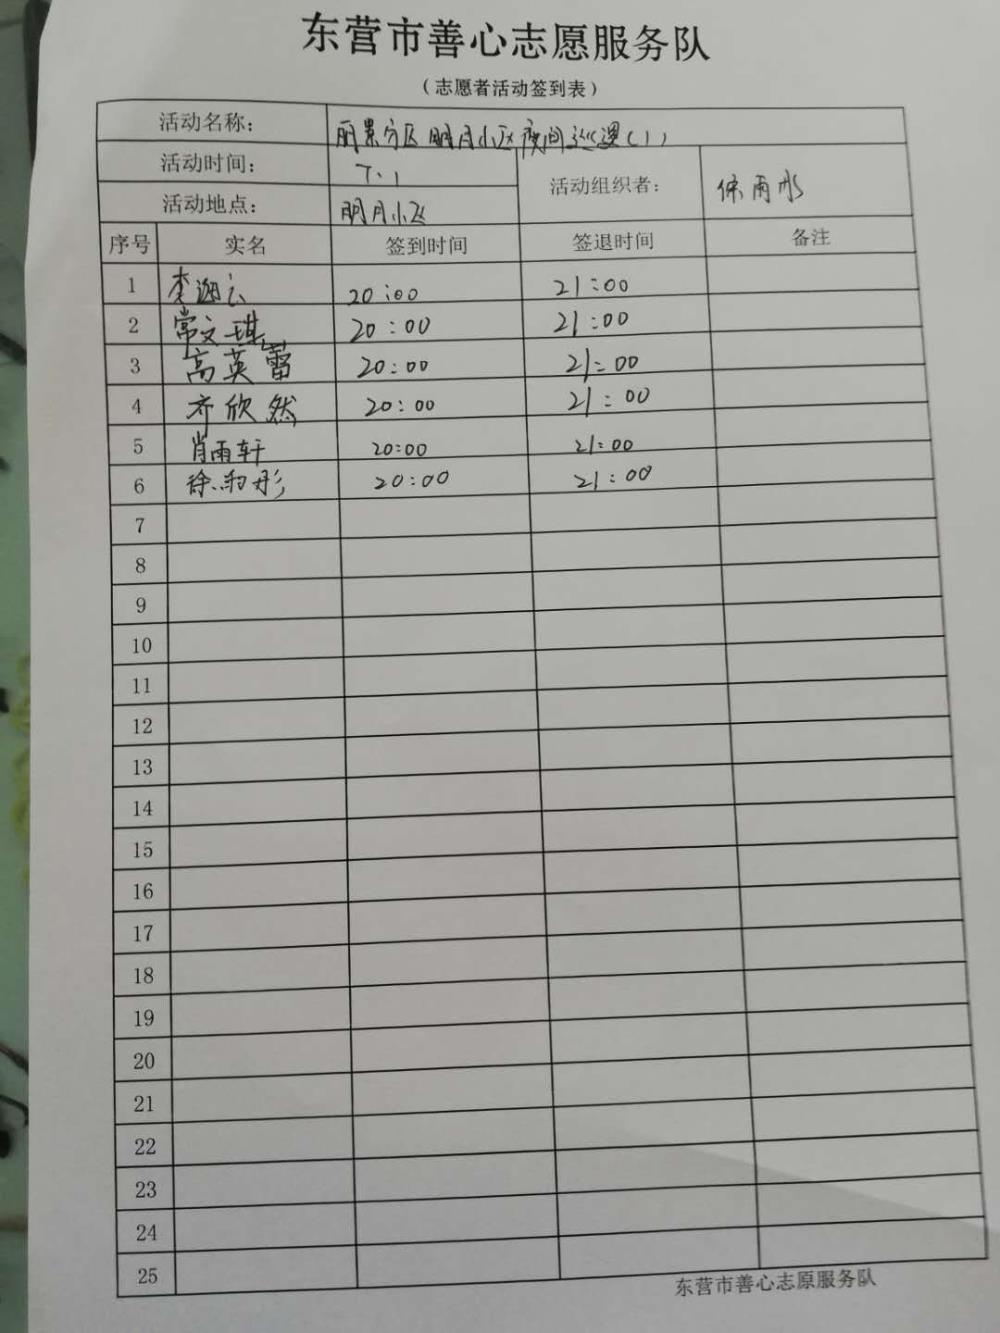 东营市善心志愿服务队
（志愿者活动签到表）
活动名称： 丽景分区明月小区夜间巡逻（1）
活动时间： 7.1 活动组织者：
活动地点： 明月小区
序号 实名 签到时间 签退时间 备注
1 李 20:00 21:00
2 常文琪 20:00 21:00
3 高英蕾 20:00 21:00
4 齐欣然 20:00 21:00
5 肖雨轩 20:00 21:00
6 徐雨彤 20:00 21:00
7
8
9
10
11
12
13
14
15
16
17
18
19
20
21
22
23
24
25
东营市善心志愿服务队